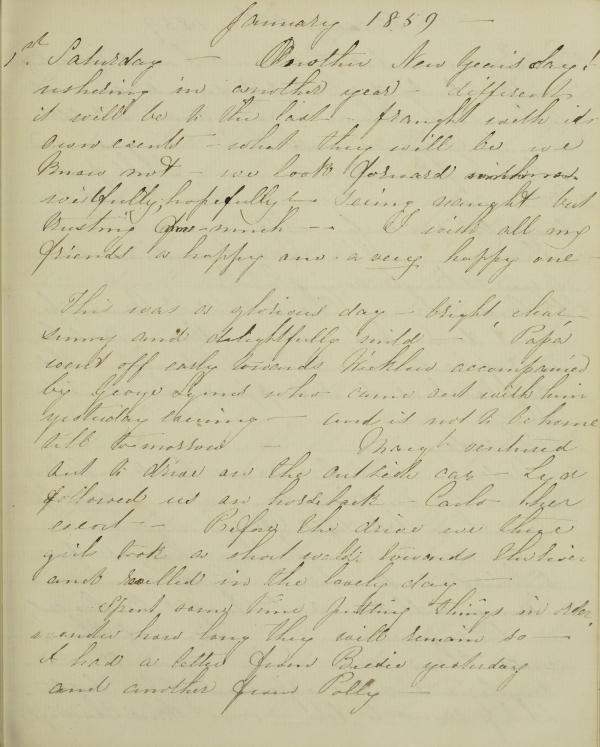 January 1859 —
1st. Saturday — Another New Year's day!
ushering in another year — different
it will be to the last — fraught with its
own events — what they will be we
know not — we look forward
wistfully, hopefully — seeing naught but
trusting much — — I wish all my
friends a happy and a very happy one —
This was a glorious day — bright clear
sunny and delightfully mild — Papa
went off early towards Wicklow accompanied
by George who came out with him
yesterday evening — and is not to be home
till tomorrow — Mary ventured
out to drive on the outside car —
followed us on horseback — Carlo her
escort — Before the drive we three
girls took a short walk towards the river
and revelled in the lovely day —
Spent some time putting things in order,
wonder how long they will remain so —
I had a letter from yesterday
and another from Polly —